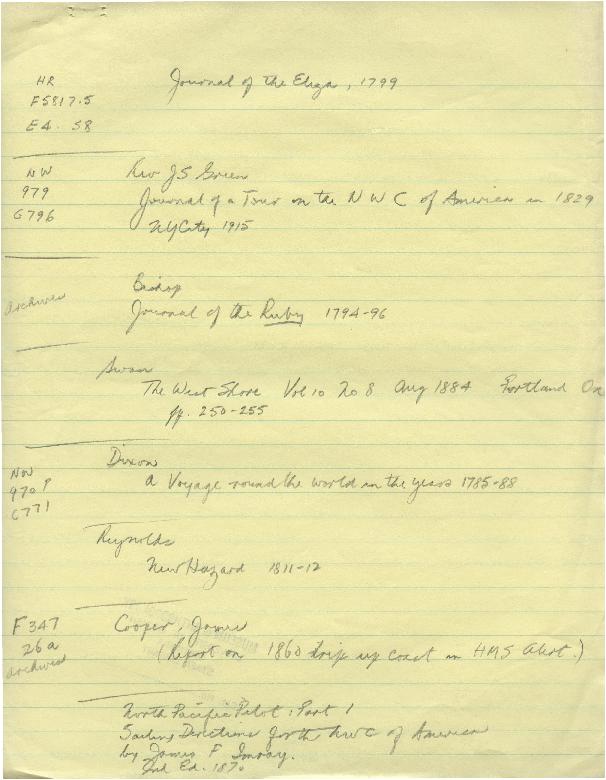 HR
F5817.5
E4. S8
Journal of the Eliza, 1799
NW
979
G796
Rev JS Green
Journal of a Tour on the N W C of America in 1829
NY City 1915
archives
Bishop
Journal of the Ruby 1794-96
Swan
The West Shore Vol 10 No 8 Aug 1884 Portland Ore
pp. 250-255
NW
970 P
C771
Dixon
A Voyage round the world in the years 1785-88
Reynolds
New Hazard 1811-12
F 347
26a
archives
Cooper, James
(Report on 1860 trip up coast in HMS Alert.)
North Pacific Pilot: Part 1
Sailing Directions for the NWC of America
by James F Imray.
2nd Ed. 1870